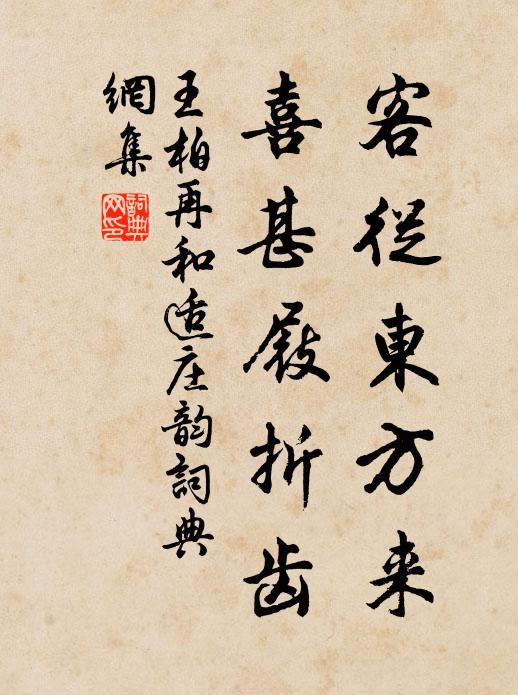 客從東方来
喜甚屐折齿
王柏再和适庄韵詞典
網集
詞典网印